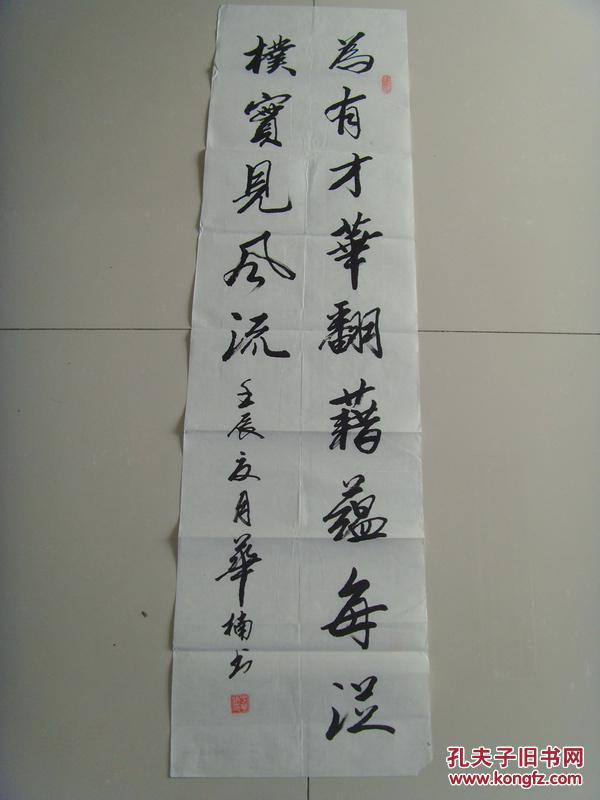 為有才華翻藉蘊每從
樸實見風流 壬辰夏月華楠书
孔夫子旧书网
www.kongfz.com